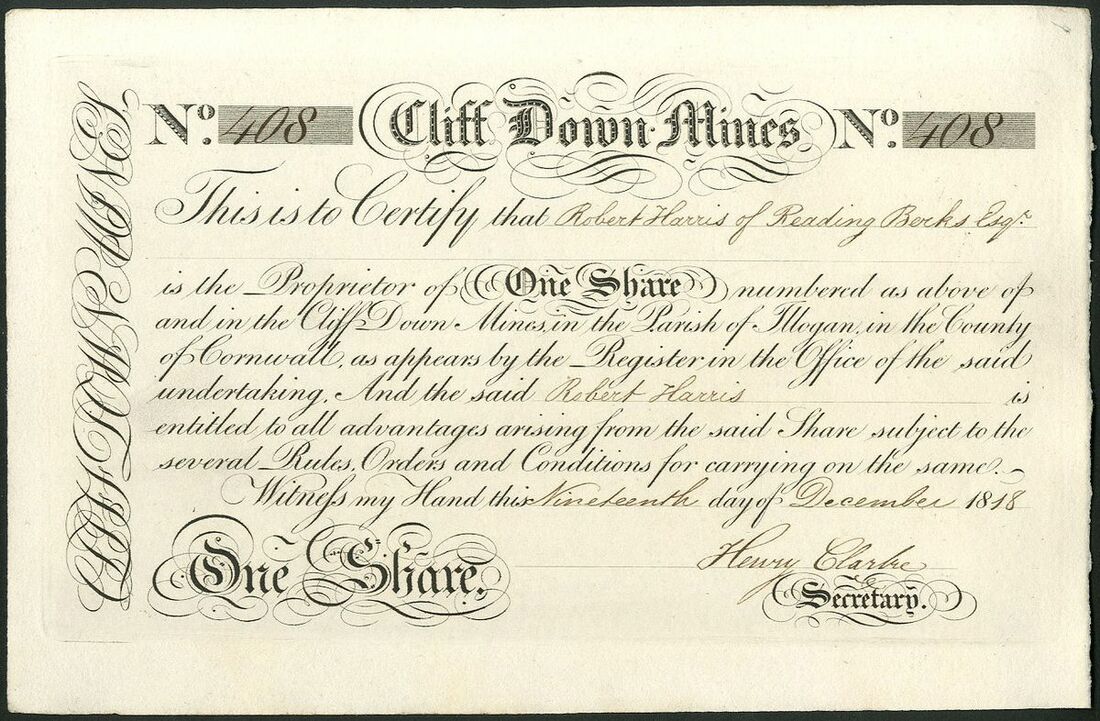 CLIFF DOWN MINES
No. 408 Cliff Down Mines No. 408
This is to Certify that Robert Harris of Reading Berks Esqr
is the Proprietor of One Share numbered as above of
and in the Cliff Down Mines, in the Parish of Illogan, in the County
of Cornwall, as appears by the Register in the Office of the said
undertaking, And the said Robert Harris is
entitled to all advantages arising from the said Share subject to the
several Rules, Orders and Conditions for carrying on the same.
Witneſs my Hand this Nineteenth day of December 1818
Henry Clarke
One Share. Secretary.